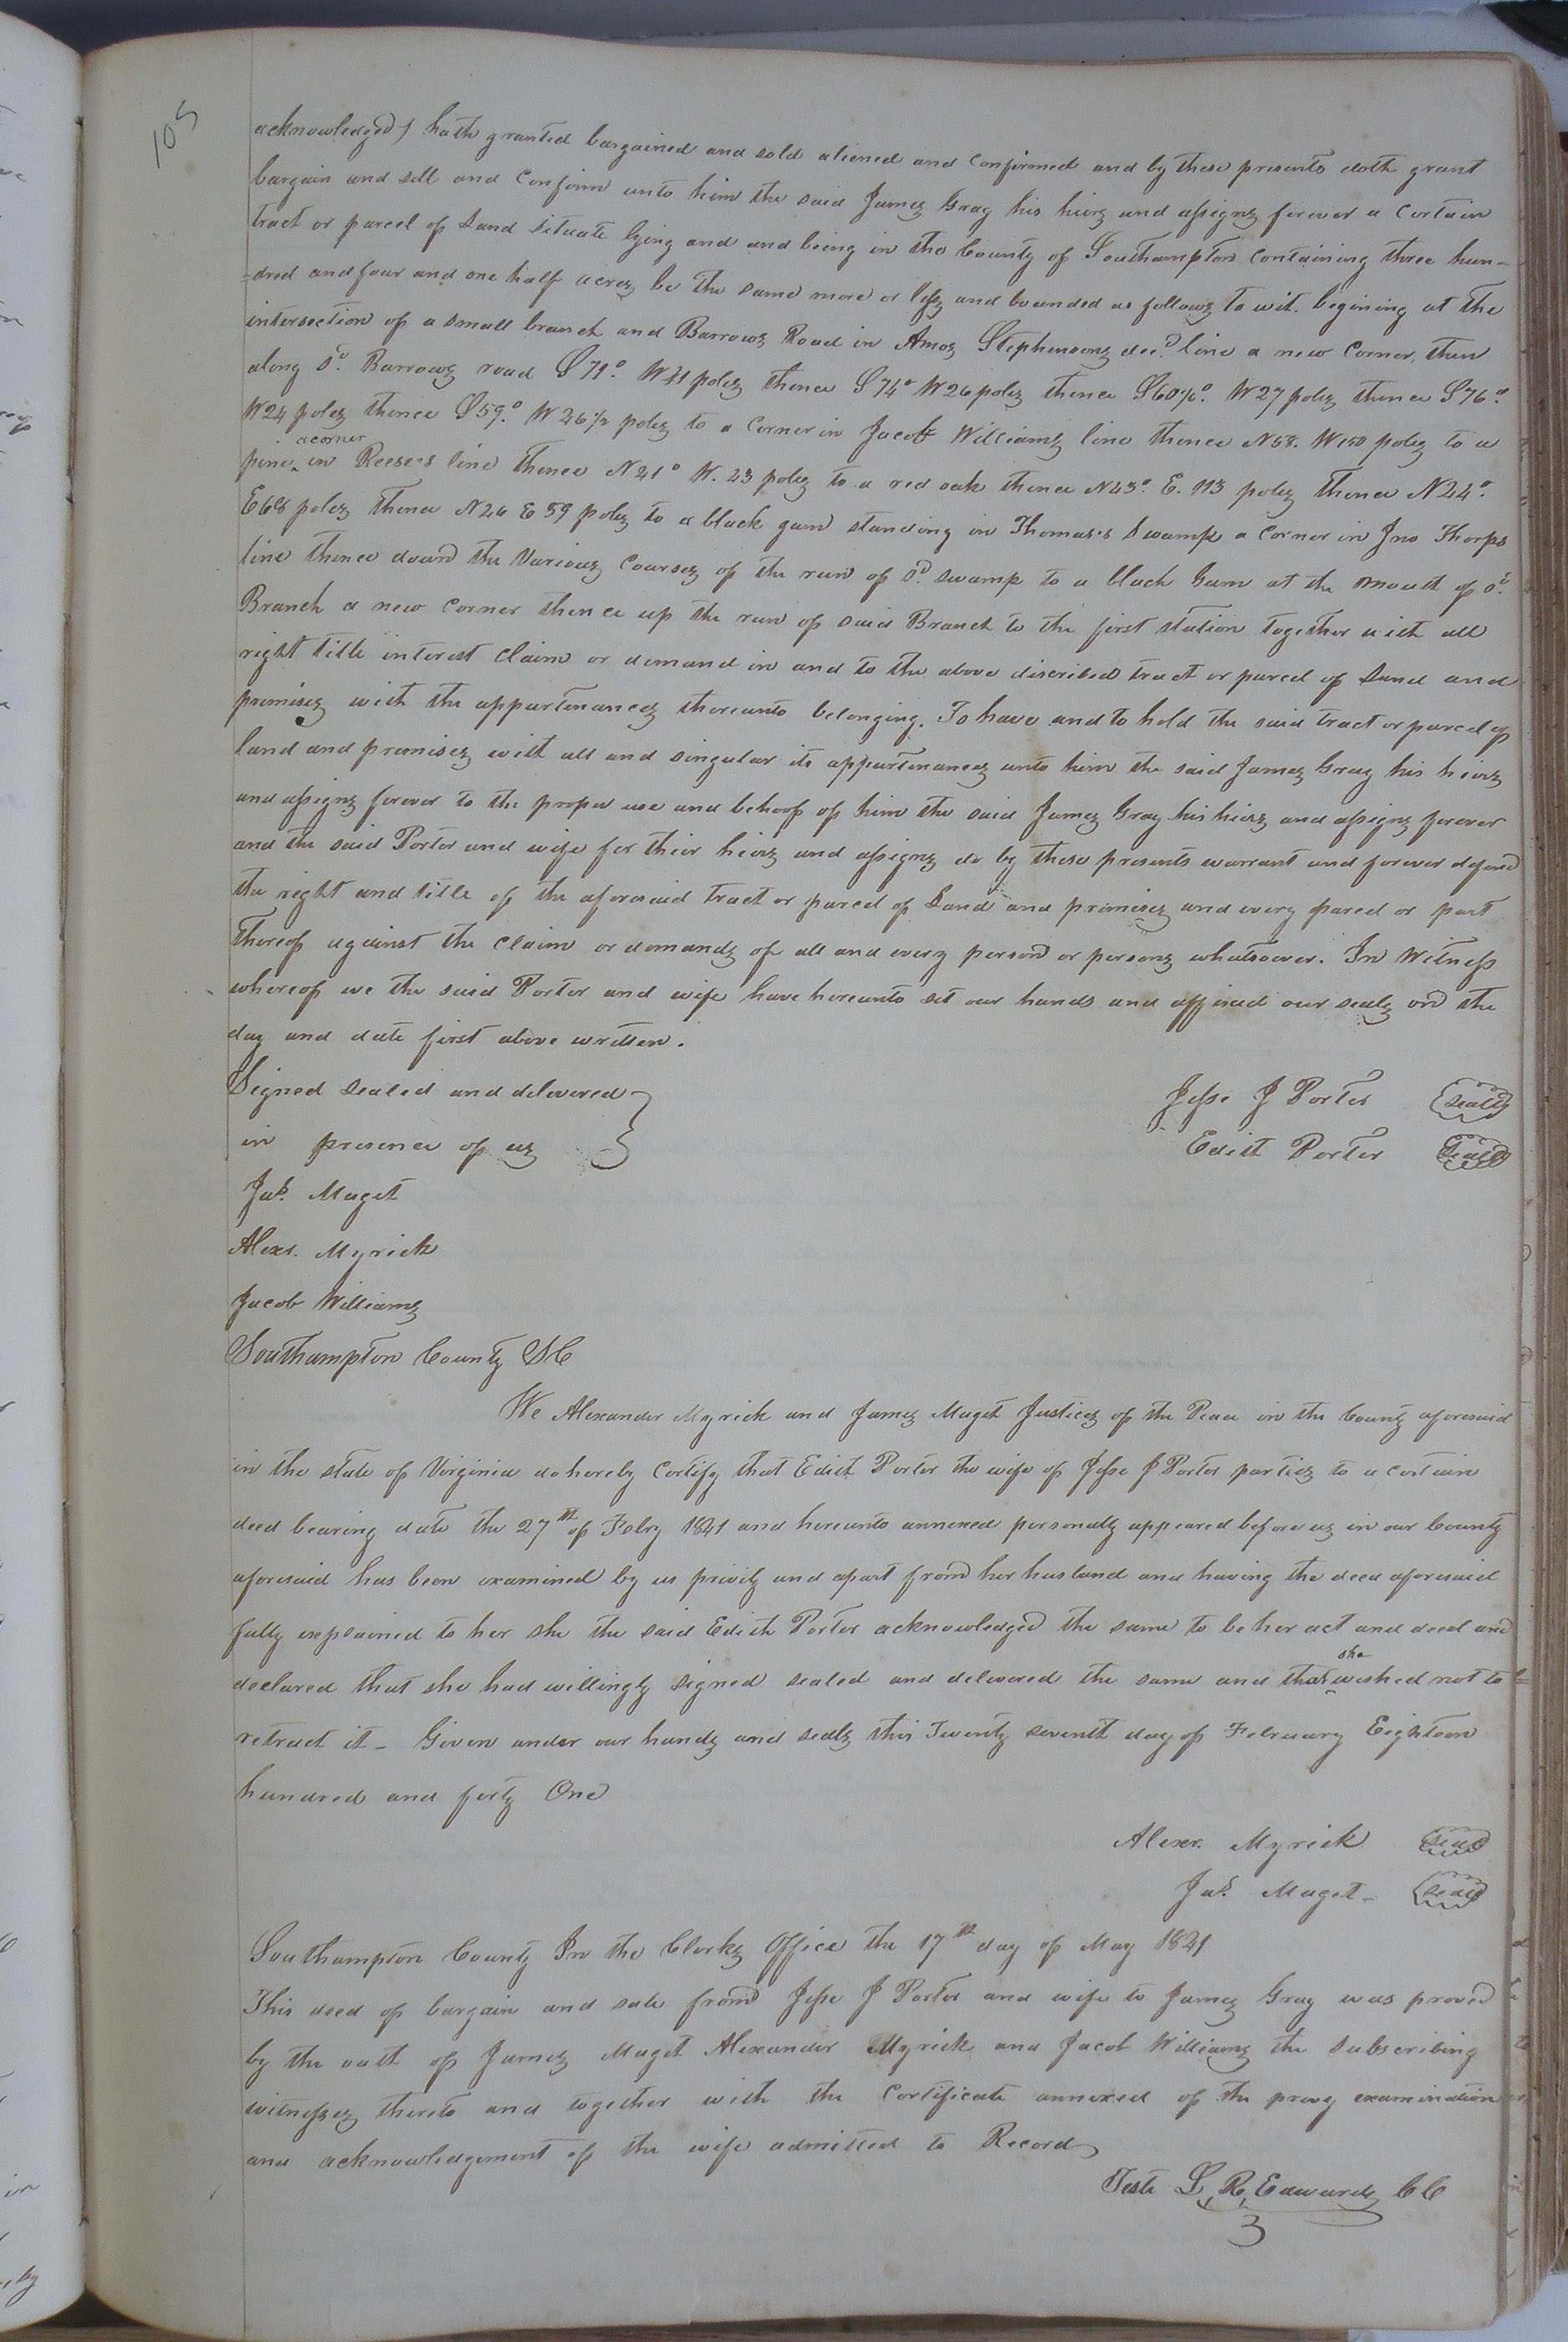 105
acknowledged) hath granted bargained and sold aliened and confirmed and by these presents doth grant
bargain and sell and confirm unto him the said James Gray his heirs and assigns forever a certain
tract or parcel of Land situate lying and and being in the County of Southampton containing three hun-
-dred and four and one half acres be the same more or less and bounded as follows to wit. begining at the
intersection of a small branch and Barrows Road in Amos Stephensons decd. line a new corner, then
along sd. Barrows road S 71° W 41 poles thence S 74° W 26 poles thence S 60½° W 27 poles thence S 76°
W 24 poles thence S 59° W 36½ poles to a corner in Jacob Williams line thence N 58. W 150 poles to a
pine a corner in Reese's line thence N 21° W. 23 poles to a red oak thence N 43° E. 113 poles thence N 24°
E 68 poles thence N 26 E 59 poles to a black gum standing in Thomas's Swamp a corner in Jno Thorps
line thence down the Various Courses of the run of sd. swamp to a black Gum at the mouth of sd.
Branch a new corner thence up the run of said Branch to the first station together with all
right title interest claim or demand in and to the above discribed tract or parcel of Land and
premises with the appurtenances thereunto belonging. To have and to hold the said tract or parcel of
land and premises with all and singular its appurtenances unto him the said James Gray his heirs
and assigns forever to the proper use and behoof of him the said James Gray his heirs and assigns forever
and the said Porter and wife for their heirs and assigns do by these presents warrant and forever defend
the right and title of the aforesaid tract or parcel of Land and premises and every parcel or part
thereof against the claim or demands of all and every person or persons whatsoever. In Witness
whereof we the said Porter and wife have hereunto set our hands and affixed our seals on the
day and date first above written.
Signed sealed and delivered
in presence of us
Jesse J Porter seal
Edith Porter seal
Jas. Maget
Alexr. Myrick
Jacob Williams
Southampton County SC
We Alexander Myrick and James Maget Justices of the Peace in the County aforesaid
in the state of Virginia do hereby certify that Edith Porter the wife of Jesse J Porter parties to a certain
deed bearing date the 27th of Feby 1841 and hereunto annexed personally appeared before us in our County
aforesaid has been examined by us privily and apart from her husband and having the deed aforesaid
fully explained to her she the said Edith Porter acknowledged the same to be her act and deed and
declared that she had willingly signed sealed and delivered the same and that she wished not to
retract it - Given under our hands and seals this Twenty seventh day of February Eighteen
hundred and forty One
Alexr. Myrick seal
Jas. Maget - seal
Southampton County In the Clerks Office the 17th day of May 1841
This deed of bargain and sale from Jesse J Porter and wife to James Gray was proved
by the oath of James Maget Alexander Myrick and Jacob Williams the subscribing
witnesses thereto and together with the Certificate annexed of the privy examination
and acknowledgement of the wife admitted to Record
Teste L. R. Edwards CC